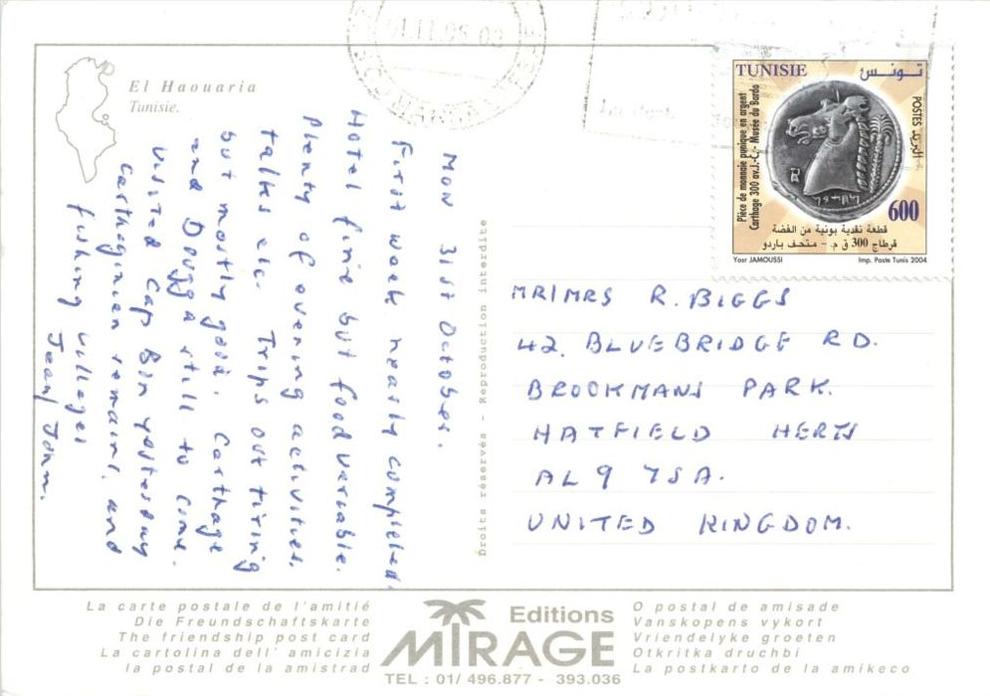 El Haouaria
Tunisie.
01.11.05 09
TUNISIE تونس
POSTES البريد
Pièce de monnaie punique en argent
Carthage 300 av.J.-C.- Musée du Bardo
600
قطعة نقدية بونية من الفضة
قرطاج 300 ق م. - متحف باردو
Yosr JAMOUSSI Imp. Poste Tunis 2004
MON 31st October.
First week nearly completed.
Hotel fine but food variable.
Plenty of evening activities,
talks etc. Trips out tiring
but mostly good. Carthage
and Dougga still to come.
Visited Cap Bon yesterday
Carthaginian remains and
fishing villages
Jean/John.
Droits réservés - Reproduction interdite
MR/MRS R. BIGGS
42. BLUEBRIDGE RD.
BROOKMANS PARK.
HATFIELD HERTS
AL9 7SA.
UNITED KINGDOM.
La carte postale de l'amitié
Die Freundschaftskarte
The friendship post card
La cartolina dell' amicizia
la postal de la amistrad
Editions
MIRAGE
TEL : 01/ 496.877 - 393.036
O postal de amisade
Vanskopens vykort
Vriendelyke groeten
Otkritka druchbi
La postkarto de la amikeco